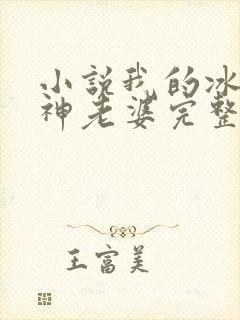 小説我的冰
神老婆完整
王富美